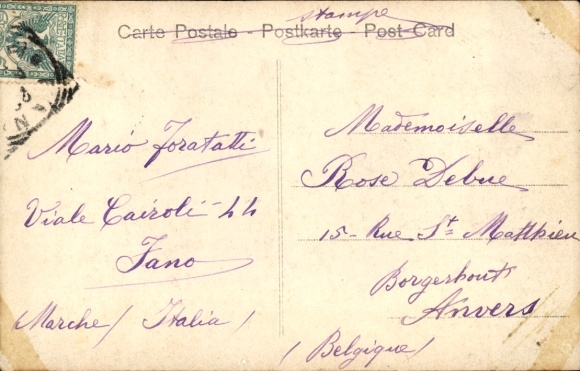 stampe
Carte Postale - Postkarte - Post Card
Mario Foratatti
Viale Cairoli - 44
Fano
(Marche) Italia)
Mademoiselle
Rose Debue
15 - Rue St Matthieu
Borgerhout
Anvers
(Belgique)